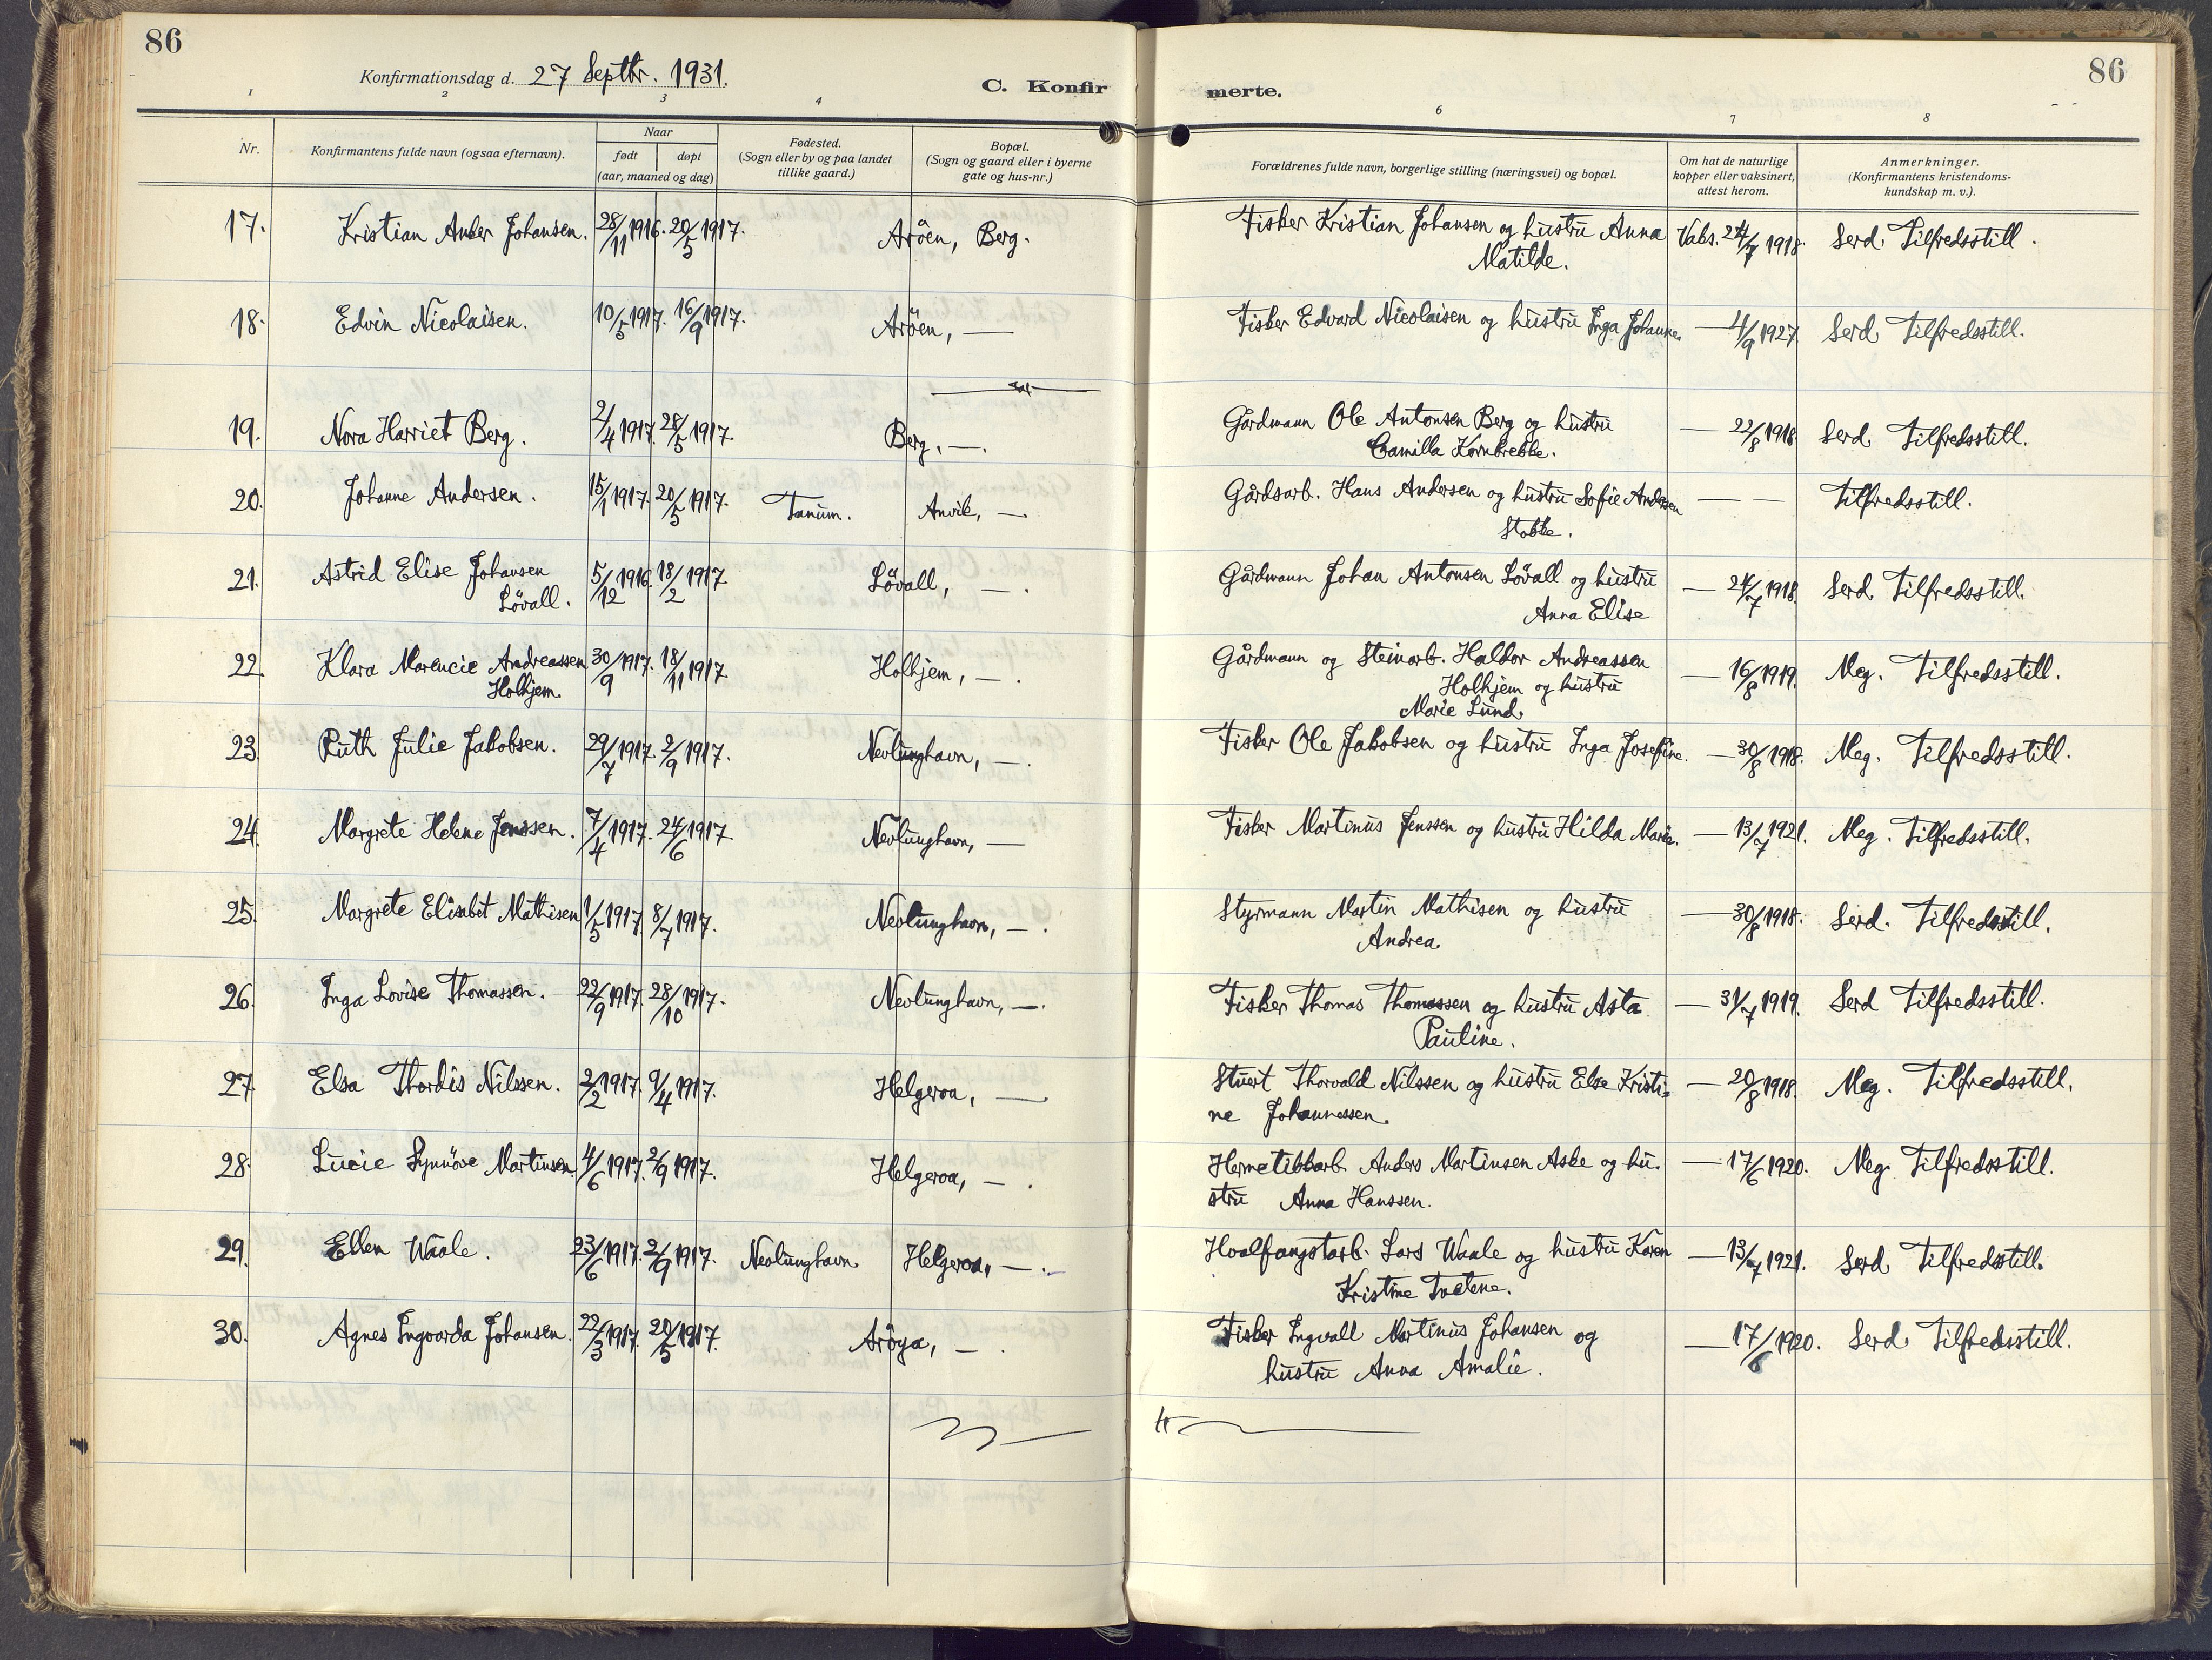 86
Konfirmationsdag d. 27 Septbr. 1931.
C. Konfirmerte.
86
1 2 3 4 6 7 8
Nr.
Konfirmantens fulde navn (ogsaa efternavn).
Naar
født døpt
(aar, maaned og dag)
Fødested.
(Sogn eller by og paa landet
tillike gaard.)
Bopæl.
(Sogn og gaard eller i byerne
gate og hus-nr.)
Forældrenes fulde navn, borgerlige stilling (næringsvei) og bopæl.
Om hat de naturlige
kopper eller vaksinert,
attest herom.
Anmerkninger.
(Konfirmantens kristendoms-
kundskap m. v.).
17. Kristian Anker Johansen. 28/11 1916. 20/5 1917. Aröen, Berg. Fisker Kristian Johansen og hustru Anna Vaks. 24/7 1918. Serd. Tilfredsstill.
Matilde.
18. Edvin Nicolaisen. 10/5 1917. 16/9 1917. Aröen, — Fisker Edvard Nicolaisen og hustru Inga Johanne. — 4/9 1927. Serd Tilfredsstill.
19. Nora Harriet Berg. 2/4 1917. 28/5 1917. Berg, —. Gårdmann Ole Antonsen Berg og hustru — 22/8 1918. Serd Tilfredsstill.
Camilla Kornbrekke.
20. Johanne Andersen. 15/1 1917. 20/5 1917. Tanum. Anvik, — Gårdsarb. Hans Andersen og hustru Sofie Andersen — — Tilfredsstill.
Stokke.
21. Astrid Elise Johansen 5/12 1916. 18/2 1917. Lövall, —. Gårdmann Johan Antonsen Lövall og hustru — 24/7 1918. Serd Tilfredsstill.
Lövall. Anna Elise
22. Klara Marencie Andreassen 30/9 1917. 18/11 1917. Holhjem, —. Gårdmann og Steinarb. Haldor Andreassen — 16/8 1919. Meg. Tilfredsstill.
Holhjem. Holhjem og hustru
Marie Lund.
23. Ruth Julie Jakobsen. 29/7 1917. 2/9 1917. Nevlunghavn, —. Fisker Ole Jakobsen og hustru Inga Josefine. — 30/8 1918. Meg. Tilfredsstill.
24. Margrete Helene Jenssen. 7/4 1917. 24/6 1917. Nevlunghavn, — Fisker Martinus Jenssen og hustru Hilda Marie. — 13/7 1921. Meg. Tilfredsstill.
25. Margrete Elisabet Mathisen 1/5 1917. 8/7 1917. Nevlunghavn, —. Styrmann Martin Mathisen og hustru — 30/8 1918. Serd. Tilfredsstill.
Andrea.
26. Inga Lovise Thomassen. 22/9 1917. 28/10 1917. Nevlunghavn, —. Fisker Thomas Thomassen og hustru Asta — 31/7 1919. Serd Tilfredsstill.
Pauline.
27. Elsa Thordis Nilssen. 2/2 1917. 9/4 1917. Helgeroa, — Stuert Thorvald Nilssen og hustru Else Kristi= — 20/8 1918. Meg. Tilfredsstill.
ne Johannessen.
28. Lucie Synnöve Martinsen. 4/6 1917. 2/9 1917. Helgeroa, —. Hermetikkarb. Anders Martinsen Aske og hu. — 17/6 1920. Meg. Tilfredsstill.
stru Anna Hanssen.
29. Ellen Waale. 23/6 1917. 2/9 1917. Nevlunghavn Helgeroa, —. Hvalfangstarb. Lars Waale og hustru Karen — 13/7 1921. Serd Tilfredsstill.
Kristine Tvetene.
30. Agnes Ingvarda Johansen. 22/3 1917. 20/5 1917. Aröya, —. Fisker Ingvall Martinus Johansen og — 17/6 1920. Serd Tilfredsstill.
hustru Anna Amalie.